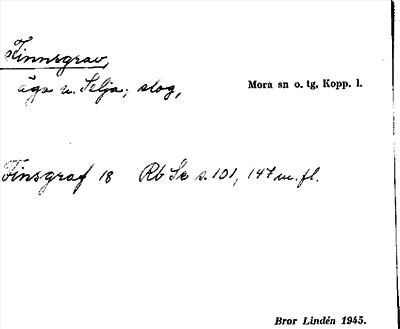 Finnsgrav,
äga u. Selja; slog,
Mora sn o. tg, Kopp. l.
Finsgraf 18 Rb Sk s. 101, 147 m. fl.
Bror Lindén 1945.